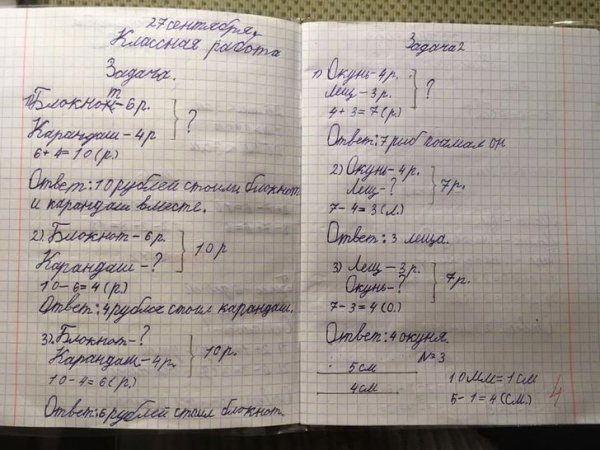 27 сентября.
Классная работа
Задача.
т
1) Блокнот - 6 р.
Карандаш - 4 р
?
6 + 4 = 10 (р.)
Ответ: 10 рублей стоили блокнот
и карандаш вместе.
2). Блокнот - 6 р.
Карандаш - ?
10 р
10 - 6 = 4 (р.)
Ответ: 4 рубля стоил карандаш.
3). Блокнот - ?
Карандаш - 4 р.
10 р.
10 - 4 = 6 (р.)
Ответ: 6 рублей стоил блокнот.
Задача 2
1) Окунь - 4 р.
Лещ - 3 р.
?
4 + 3 = 7 (р.)
Ответ: 7 риб поймал он
2) Окунь - 4 р.
Лещ - ?
7 р.
7 - 4 = 3 (л.)
Ответ: 3 леща.
3) Лещ - 3 р.
Окунь - ?
7 р.
7 - 3 = 4 (о.)
Ответ: 4 окуня.
№ 3
5 см
4 см
10 мм = 1 см
5 - 1 = 4 (см.)
4